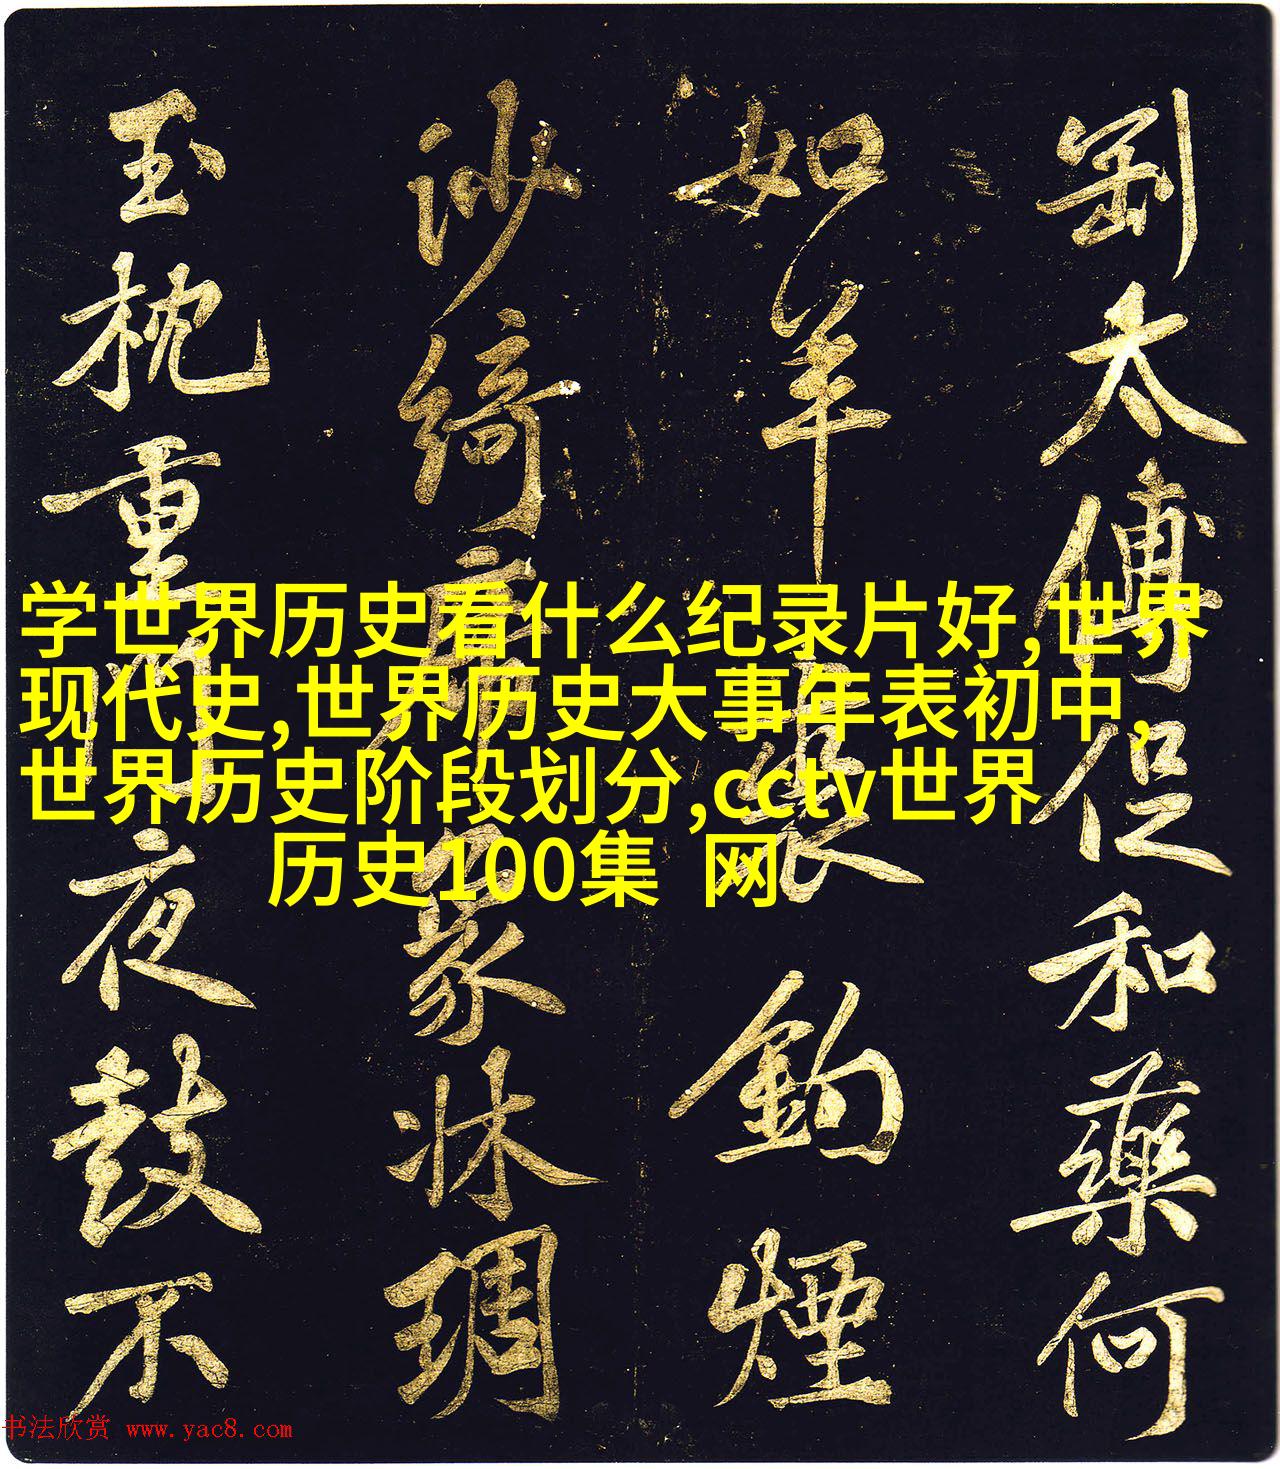 学世界历史看什么纪录片好,世界
现代史,世界历史大事年表初中,
世界历史阶段划分,cctv世界
历史100集 网
太傅促和藥何
如羊
鈎煙
沙綺
玉枕重
夜鼓不
书法欣赏 www.yac8.com